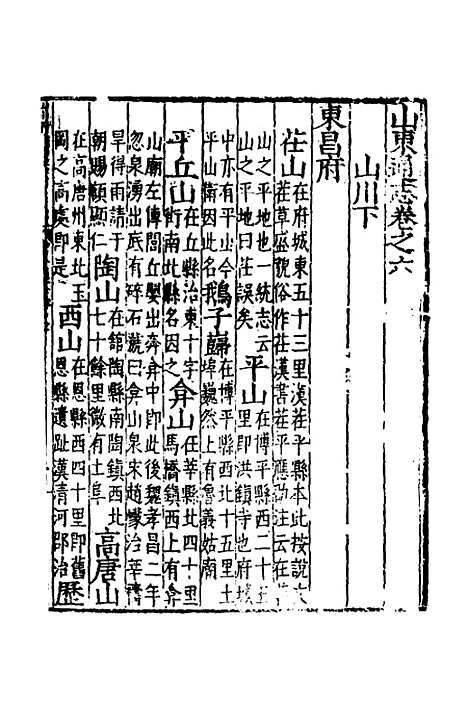 山東通志卷之六
山川下
東昌府
茌山在府城東五十三里漢茌平縣本此按說文
茌草盛貌俗作茌漢書茌平應劭注云在茌
山之平地也一統志云平山在博平縣西二十五
山之平地曰茌誤矣里即洪鎮寺也府城
中亦有平山今鴈子巋在博平縣西北十五里土
平山衛因此名我埠巍然上有魯義姑廟
平丘山在丘縣治東十字弇山在莘縣北四十里
街南此縣名因之馬橋鎮西上有弇
山廟左傳閭丘嬰出奔弇中即此後魏孝昌二年
忽泉湧出底有碎石號曰弇山泉宋趙懞治莘禱
旱得雨請于陶山在館陶縣南陶鎮西北
朝賜額顯仁七十餘里微有土阜高唐山
在高唐州東北玉西山在恩縣西四十里即舊
岡之高處即是恩縣遺趾漢清河郡治歷